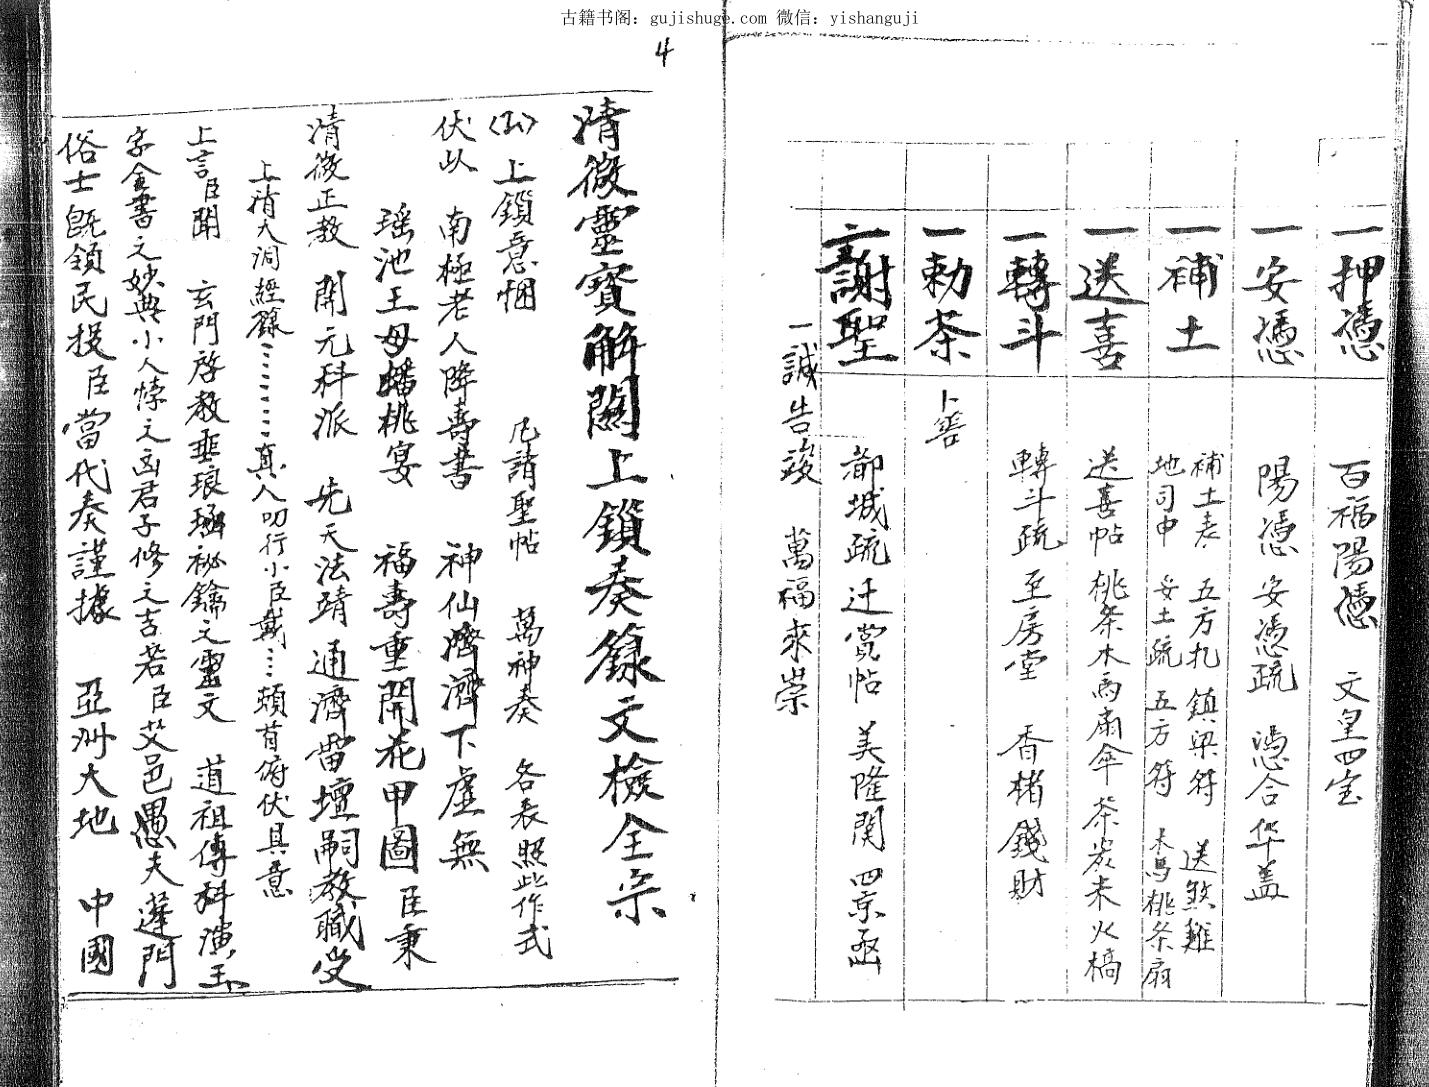 古籍书阁：gujishuge.com 微信：yishanguji
一押憑 百福陽憑 文皇四宝
一安憑 陽憑 安憑疏 憑合华盖
一補土 補土表 五方札 鎮梁符 送煞雞
地司申 安土疏 五方符 木馬桃条扇
一送喜 送喜帖 桃条木馬扇伞茶炭米火槁
一轉斗 轉斗疏 至房堂 香楮錢財
一勅茶 卜筶
一謝聖 都城疏 迁賞帖 美隆関 四京函
一誠告竣 萬福來崇
4
清微靈寶解関上鎖奏籙文檢全宗
上鎖意悃 凡請聖帖 萬神奏 各表照此作式
伏以 南極老人降壽書 神仙濟濟下虛無
瑶池王母蟠桃宴 福壽重開花甲圖 臣秉
清微正教 開元科派 先天法靖 通濟雷壇嗣教職受
上清大洞經籙…………真人叨行小臣戴…頓首俯伏具意
上言臣聞 玄門啓教垂琅函祕鑰之靈文 道祖傳科演玉
字金書之妙典小人悖之凶君子修之吉若臣艾邑愚夫蓬門
俗士旣領民投臣當代奏謹據 亞洲大地 中國